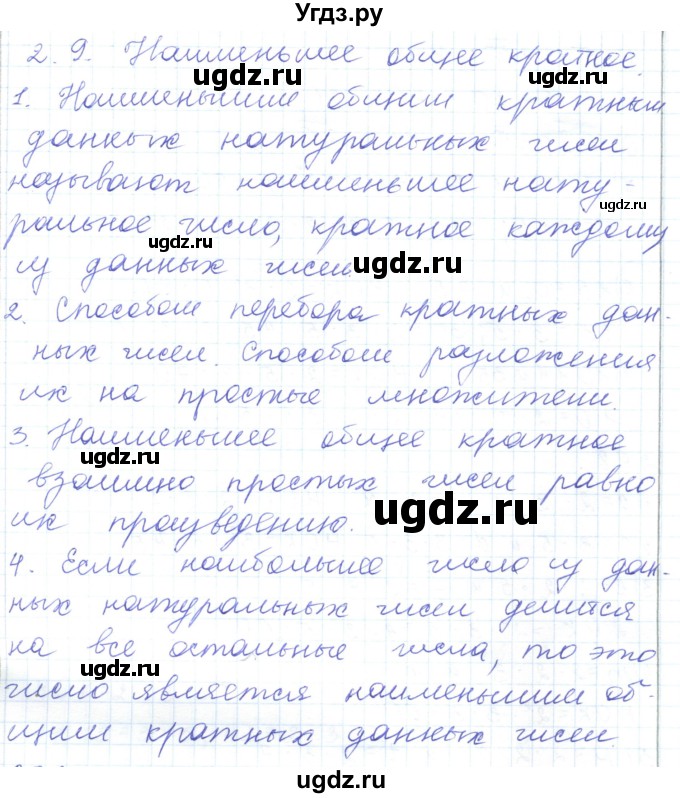 Угдз.ру
2.9. Наименьшее общее кратное.
ugdz.ru
ugdz.ru
1. Наименьшим общим кратным
ugdz.ru
данных натуральных чисел
называют наименьшее нату-
ugdz.ru
ральное число, кратное каждому
ugdz.ru
из данных чисел.
ugdz.ru
2. Способом перебора кратных дан-
ных чисел. Способом разложения
их на простые множители.
3. Наименьшее общее кратное
ugdz.ru
взаимно простых чисел равно
их произведению.
ugdz.ru
4. Если наибольшее число из дан-
ugdz.ru
ных натуральных чисел делится
на все остальные числа, то это
ugdz.ru
число является наименьшим об-
щим кратных данных чисел.
ugdz.ru